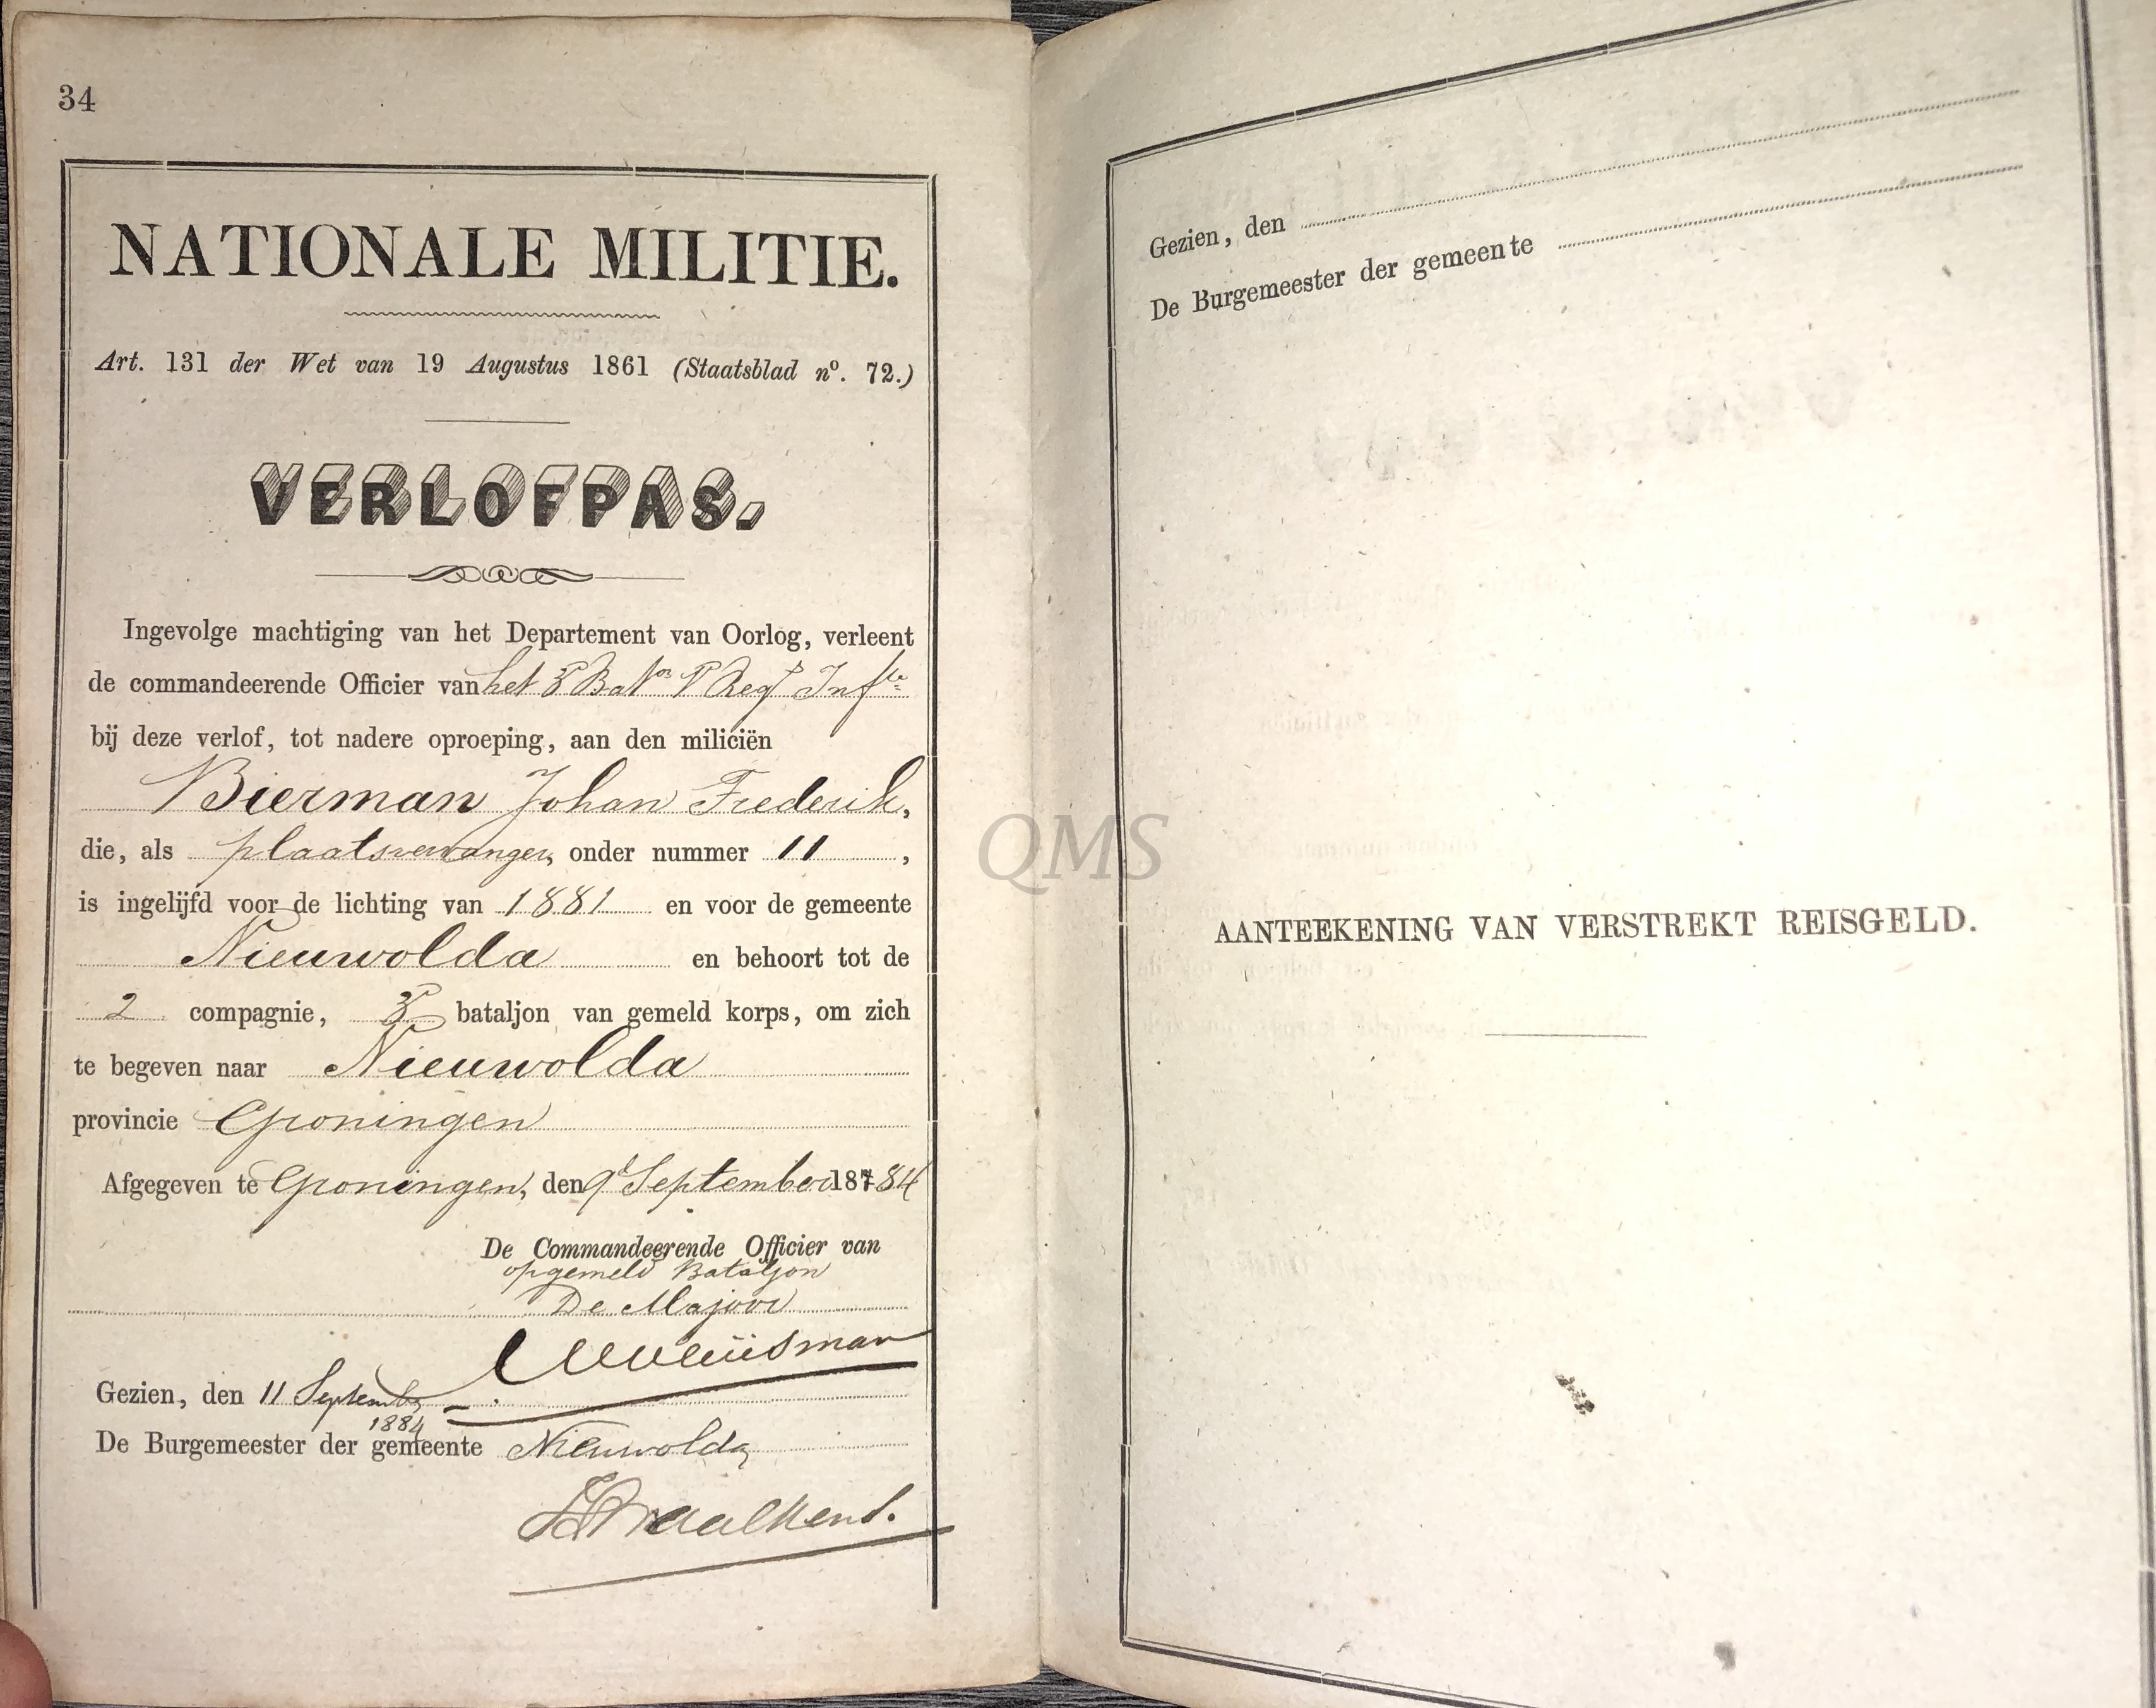 34
NATIONALE MILITIE.
Art. 131 der Wet van 19 Augustus 1861 (Staatsblad nº. 72.)
VERLOFPAS.
Ingevolge machtiging van het Departement van Oorlog, verleent
de commandeerende Officier van het 3e Baton 1e Regt Inftie
bij deze verlof, tot nadere oproeping, aan den miliciën
Bierman Johan Frederik,
die, als plaatsvervanger, onder nummer 11,
is ingelijfd voor de lichting van 1881 en voor de gemeente
Nieuwolda en behoort tot de
2 compagnie, 3e bataljon van gemeld korps, om zich
te begeven naar Nieuwolda
provincie Groningen
Afgegeven te Groningen, den 9e September 187 84
De Commandeerende Officier van
opgemeld Bataljon
De Majoor
Gezien, den 11 Septemb
1884
De Burgemeester der gemeente Nieuwolda
Gezien, den
De Burgemeester der gemeente
QMS
AANTEEKENING VAN VERSTREKT REISGELD.